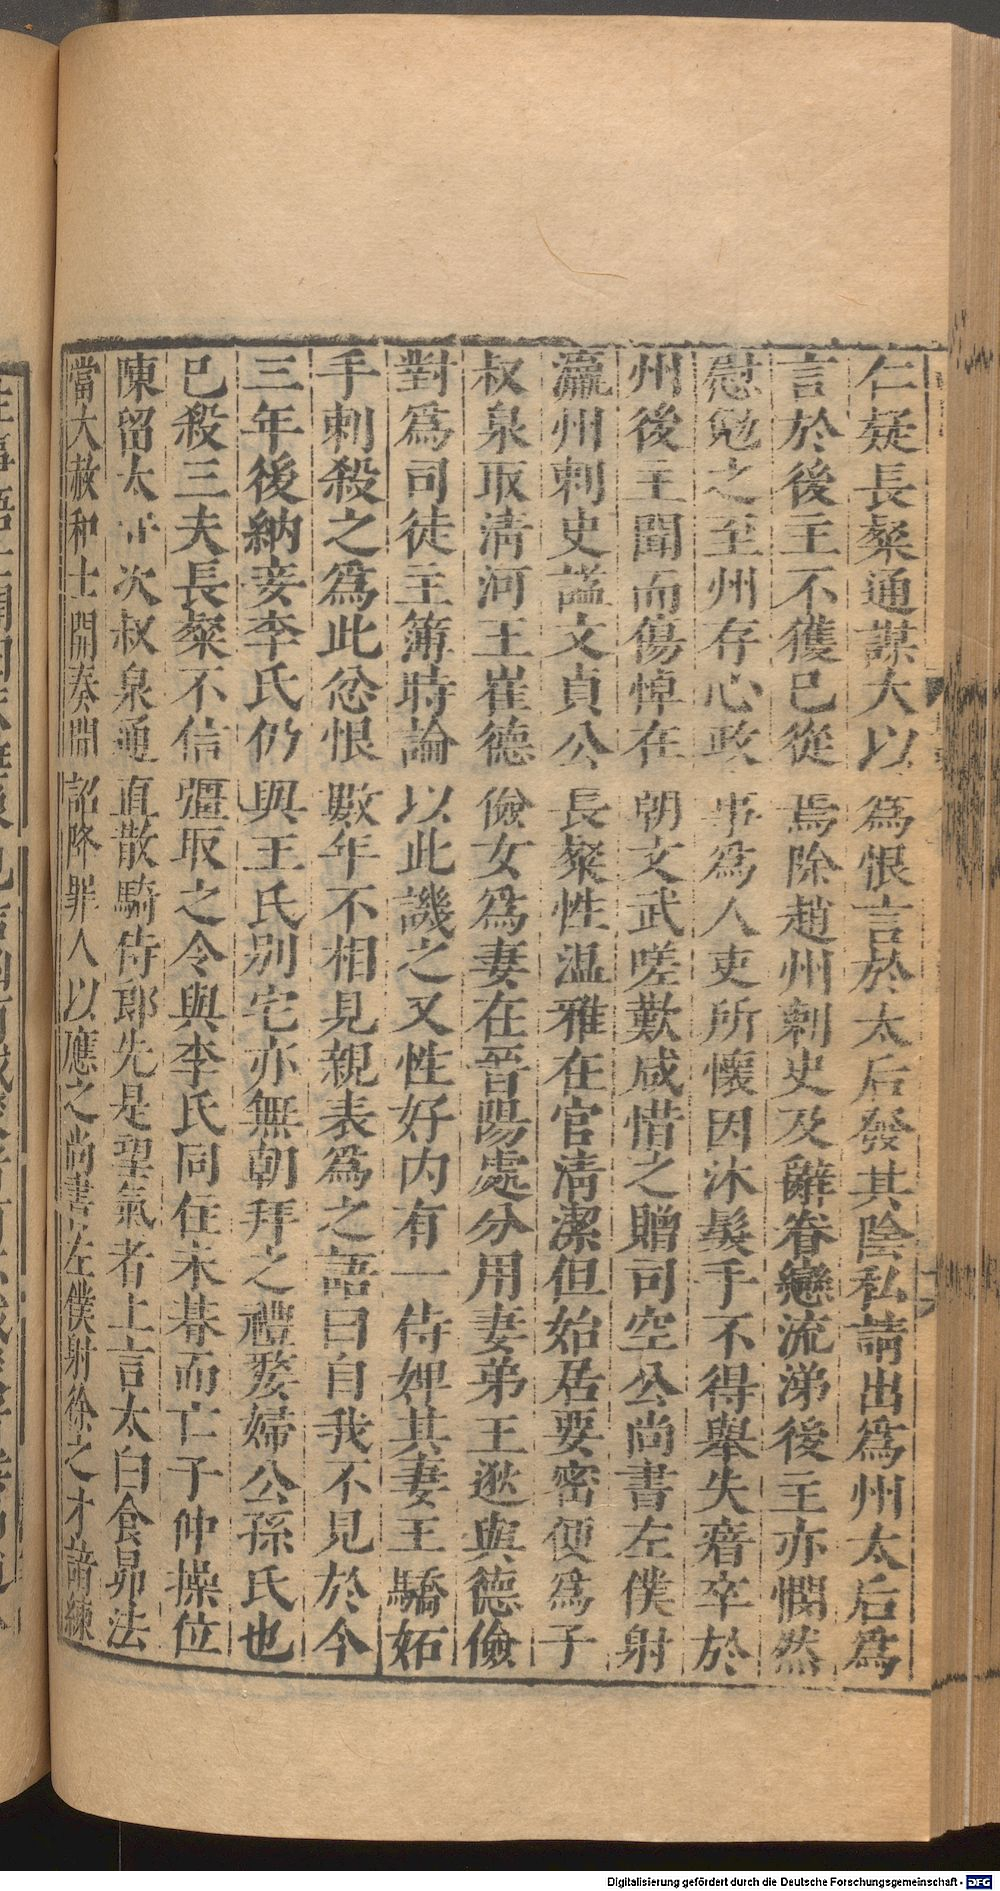 仁疑長粲通謀大以爲恨言於太后發其陰私請出爲州太后爲
言於後主不獲已從焉除趙州刺史及辭眷戀流涕後主亦憫然
慰勉之至州存心政事爲人吏所懷因沐髮手不得舉失瘖卒於
州後主聞而傷悼在朝文武嗟歎咸惜之贈司空公尚書左僕射
瀛州刺史謚文貞公長粲性温雅在官清潔但始居要密便爲子
叔泉取清河王崔德儉女爲妻在晉陽處分用妻弟王逖與德儉
對爲司徒主簿時論以此譏之又性好内有一侍婢其妻王驕妬
手刺殺之爲此忿恨數年不相見親表爲之語曰自我不見於今
三年後納妾李氏仍與王氏别宅亦無朝拜之禮嫠婦公孫氏也
已殺三夫長粲不信彊取之令與李氏同住未朞而亡子仲操位
陳留太守次叔泉通直散騎侍郎先是望氣者上言太白食昴法
當大赦和士開奏聞詔降罪人以應之尚書左僕射徐之才諳練
Digitalisierung gefördert durch die Deutsche Forschungsgemeinschaft - DFG